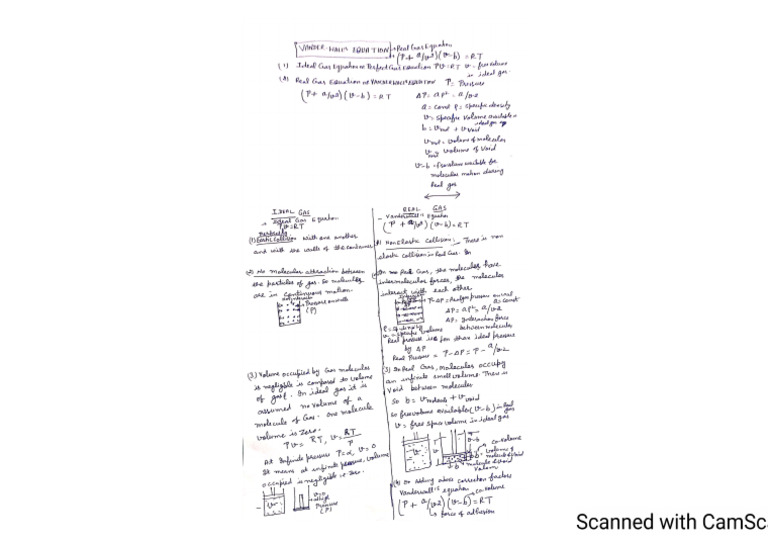 VANDER-WALL'S EQUATION → Real Gas Equation
(P + a/v2)(v-b) = RT
(1) Ideal Gas Equation or Perfect Gas Equation Pv=RT v- free volume
in ideal gas.
(2) Real Gas Equation or VANDERWALL'S EQUATION P= Pressure
(P+ a/v2)(v-b) = RT ΔP= aρ2 = a/v2
a = const ρ= specific density
v= specific volume available in
ideal gas
b= vmol + vvoid
vmol = volume of molecules
= volume of void
v-b = free volume available for
molecular motion during
Real gas
IDEAL GAS
Ideal Gas Equation
Pv=RT
Perfectly
(1) Elastic Collision with one another
and with the walls of the container
(2) No molecular attraction between
the particles of gas. So molecules
are in continuous motion.
Pressure on walls
(P)
(3) Volume occupied by Gas molecules
is negligible is compared to volume
of gas. In ideal gas it is
assumed no volume of a
molecule of Gas. One molecule
volume is zero.
Pv= RT, v= RT/P
At Infinite pressure P=α, v=0
It means at infinite pressure, volume
occupied is negligible or zero.
v
v=0
Pressure
(P)
REAL GAS
- Vanderwall's Equation
(P + a/v2)(v-b)=RT
(1) Non Elastic Collision:- There is non
elastic collision in Real Gas.
(2) In Real Gas, the molecules have
intermolecular forces, the molecules
interact with each other.
P-ΔP= Real gas pressure on wall
a= const
ΔP= aρ2, a/v2
ΔP= Interaction force
between molecules
v= specific volume
Real pressure is less than ideal pressure
by ΔP
Real Pressure = P-ΔP = P- a/v2
(3) In Real Gas, molecules occupy
an infinite small volume. There is
void between molecules
So b= vmolecule + vvoid
So free volume available (v-b) in Real
gas
v= free space volume in ideal gas
v
v-b
b
co-volume
volume of
molecule & void
molecule & void
volume
(4) On adding above correction factors
Vanderwall's equation
co-volume
(P + a/v2)(v-b)=RT
↳ force of adhesion
Scanned with CamSc